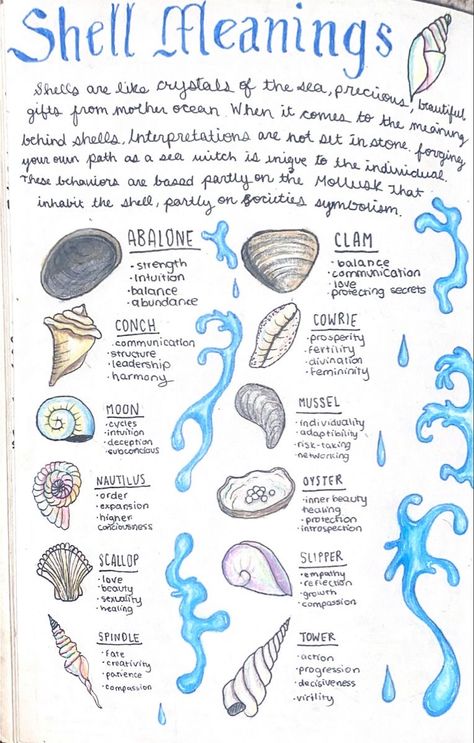 Shell Meanings
Shells are like crystals of the sea, precious, beautiful
gifts from mother ocean. When it comes to the meaning
behind shells, Interpretations are not set in stone. forging
your own path as a sea witch is uniqe to the individual.
These behaviors are based partly on the Mollusk That
inhabit the shell, partly on societies symbolism.
ABALONE
• strength
• Intuition
• balance
• abundance
CLAM
• balance
• communication
• love
• protecting secrets
CONCH
• communication
• structure
• leadership
• harmony
COWRIE
• prosperity
• fertility
• divination
• femininity
MOON
• cycles
• intuition
• deception
• subconscious
MUSSEL
• individuality
• adaptibility
• risk-taking
• networking
NAUTILUS
• order
• expansion
• higher
consciousness
OYSTER
• inner beauty
• healing
• protection
• introspection
SCALLOP
• love
• beauty
• sexuality
• healing
SLIPPER
• empathy
• reflection
• growth
• compassion
SPINDLE
• Fate
• creativity
• patience
• compassion
TOWER
• action
• progression
• decisiveness
• virility